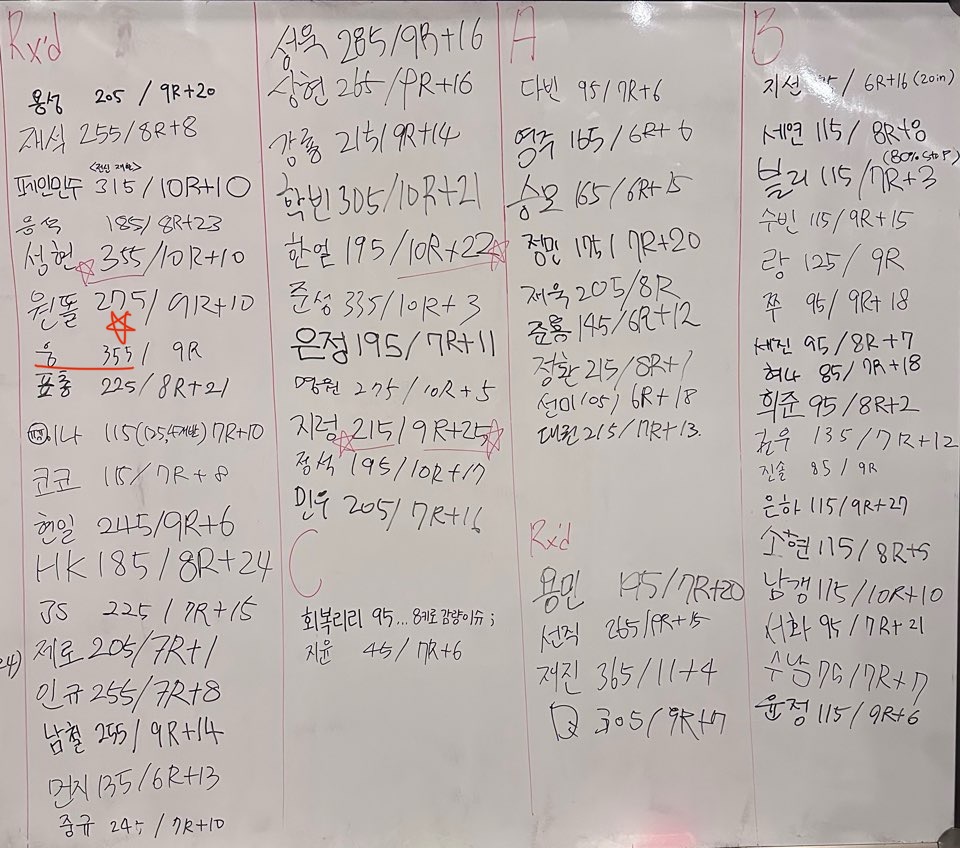 Rx'd
용성 205 / 9R+20
재석 255/8R+8
<전신 재활>
페인민수 315/10R+10
웅석 185/8R+23
성현 355/10R+10
원똘 275/9R+10
웅 355/ 9R
표홍 225/8R+21
이나 115(125,4개반) 7R+10
코코 115/7R+8
현일 245/9R+6
HK 185/8R+24
JS 225/7R+15
제로 205/7R+1
인규 255/7R+8
남철 255/9R+14
먼지 135/6R+13
중규 245/7R+10
성욱 285/9R+16
상현 265/9R+16
강룡 215/9R+14
학빈 305/10R+21
한얼 195/10R+22
준성 335/10R+3
은정 195/7R+11
명원 275/10R+5
지렁 215/9R+25
정석 195/10R+17
민우 205/7R+16
C
회복리리 95...8키로감량이슈;
지윤 45/7R+6
A
다빈 95/7R+6
영주 165/6R+6
승모 165/6R+15
정민 175/7R+20
제욱 205/8R
준룡 145/6R+12
정환 215/8R+1
선미 105/6R+18
대원 215/7R+13.
Rx'd
용민 195/7R+20
선직 265/9R+15
재진 365/11+4
Q 305/9R+7
B
지선 / 6R+16 (20in)
세연 115/8R+8
(80% Step)
빌리 115/7R+3
수빈 115/9R+15
랑 125/9R
쭈 95/9R+18
세진 95/8R+7
혀나 85/7R+18
희준 95/8R+2
135/7R+12
진솔 85/9R
은하 115/9R+27
소현 115/8R+5
남갱 115/10R+10
서화 95/7R+21
수남 75/7R+7
윤정 115/9R+6